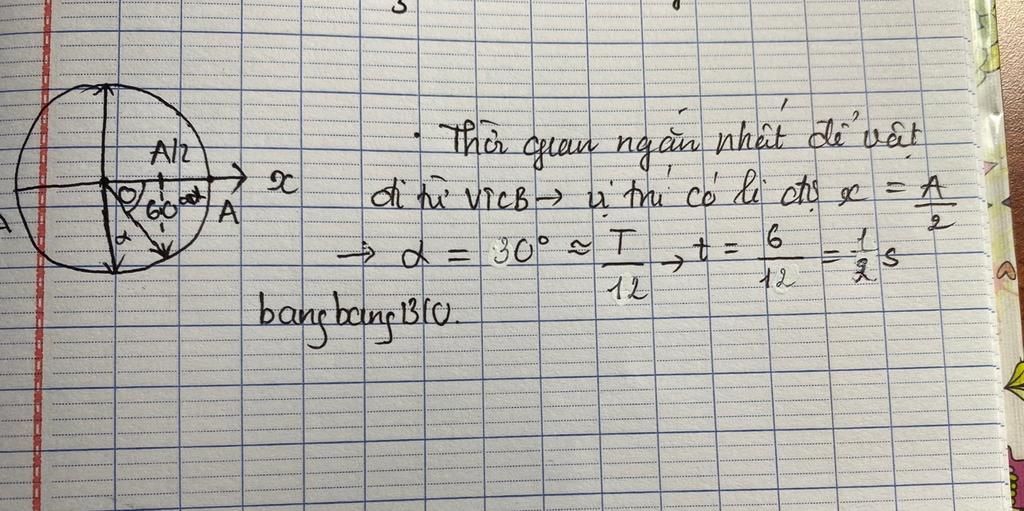 A/2
x
O
60°
A
α
. Thời quan ngắn nhất để vật
đi từ VTCB → vị trí có li độ x = A/2
→ α = 30° ≈ T/12 → t = 6/12 = 1/2 s
bangbang1310.